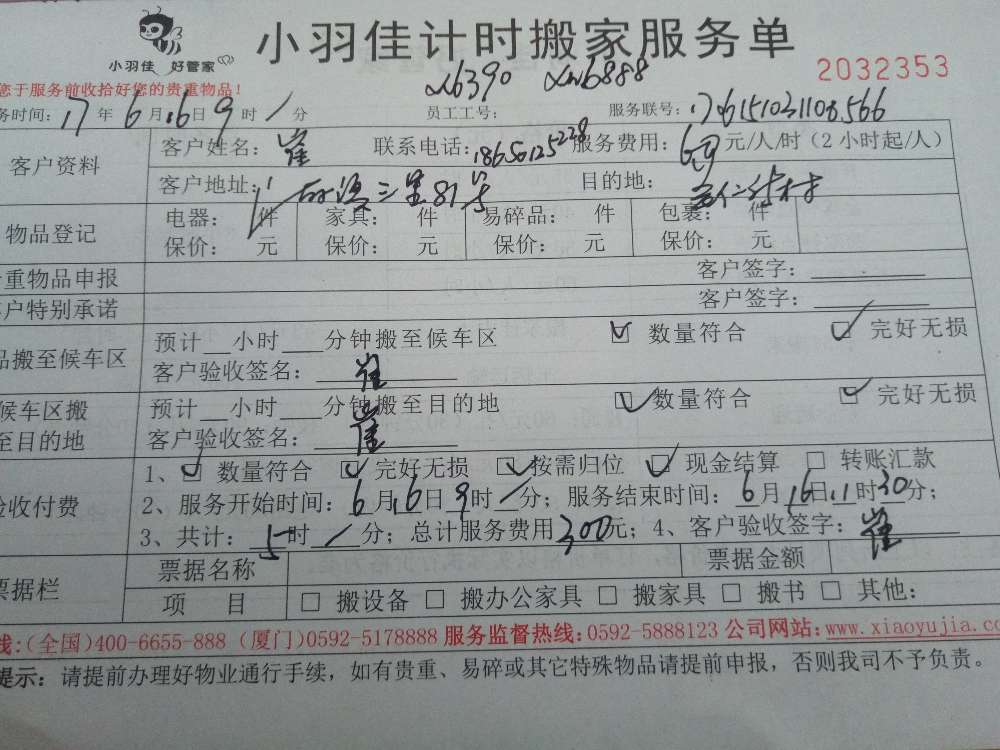 小羽佳 好管家
小羽佳计时搬家服务单
2032353
您于服务前收拾好您的贵重物品！
务时间：17年6月16日9时/分 员工工号：x6390 xw6888 服务联号：
客户资料 客户姓名：崔 联系电话：18650125228 服务费用：60元/人/时（2小时起/人）
客户地址： 三里81号 目的地：
物品登记 电器： 件 家具： 件 易碎品： 件 包裹： 件
保价： 元 保价： 元 保价： 元 保价： 元
重物品申报 客户签字：
户特别承诺 客户签字：
品搬至候车区 预计__小时___分钟搬至候车区 ☑ 数量符合 ☑ 完好无损
客户验收签名：崔
候车区搬至目的地 预计__小时___分钟搬至目的地 ☑ 数量符合 ☑ 完好无损
客户验收签名：崔
验收付费 1、☑ 数量符合 ☑ 完好无损 ☑ 按需归位 ☑ 现金结算 □ 转账汇款
2、服务开始时间：6月16日9时/分；服务结束时间：6月16日 时30分；
3、共计：5时/分；总计服务费用300元；4、客户验收签字：崔
票据栏 票据名称 票据金额
项 目 □ 搬设备 □ 搬办公家具 □ 搬家具 □ 搬书 □ 其他：
线：(全国)400-6655-888 (厦门)0592-5178888 服务监督热线：0592-5888123 公司网站：www.xiaoyujia.co
提示：请提前办理好物业通行手续，如有贵重、易碎或其它特殊物品请提前申报，否则我司不予负责。